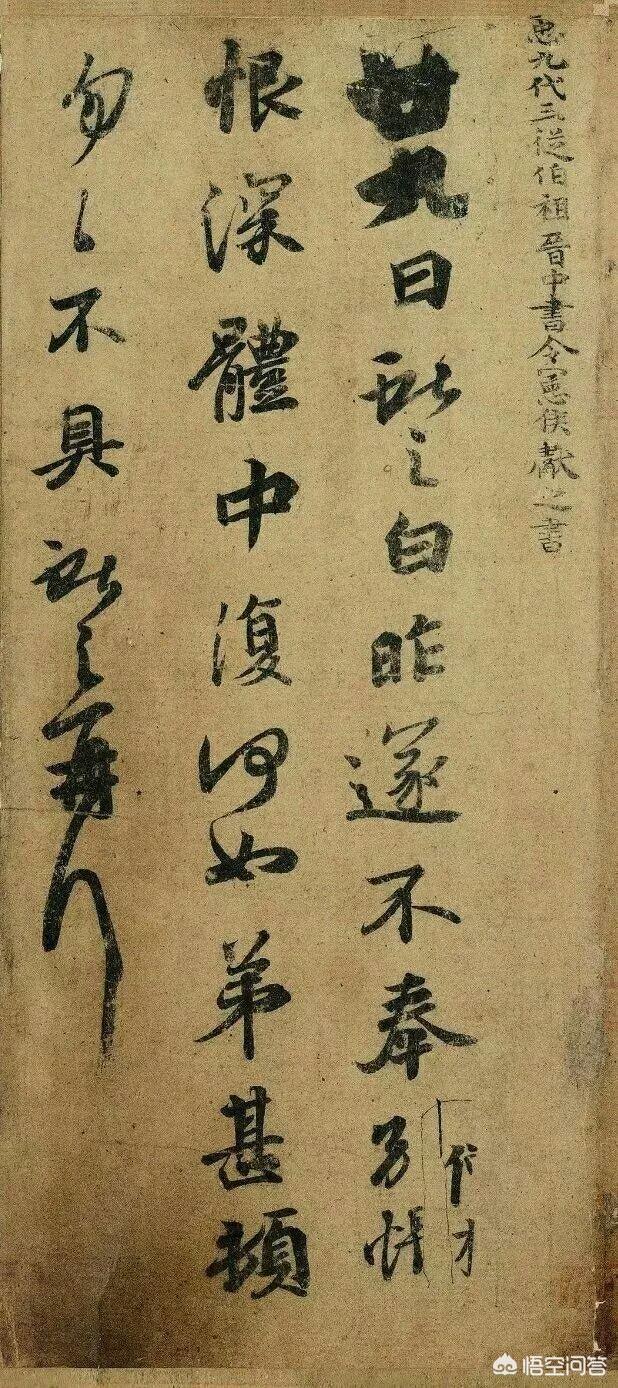 臣九代三從伯祖晉中書令憲侯獻之書
廿九日獻之白昨遂不奉別悵
恨深體中復何如弟甚頓
匆々不具獻之再拜
悟空问答